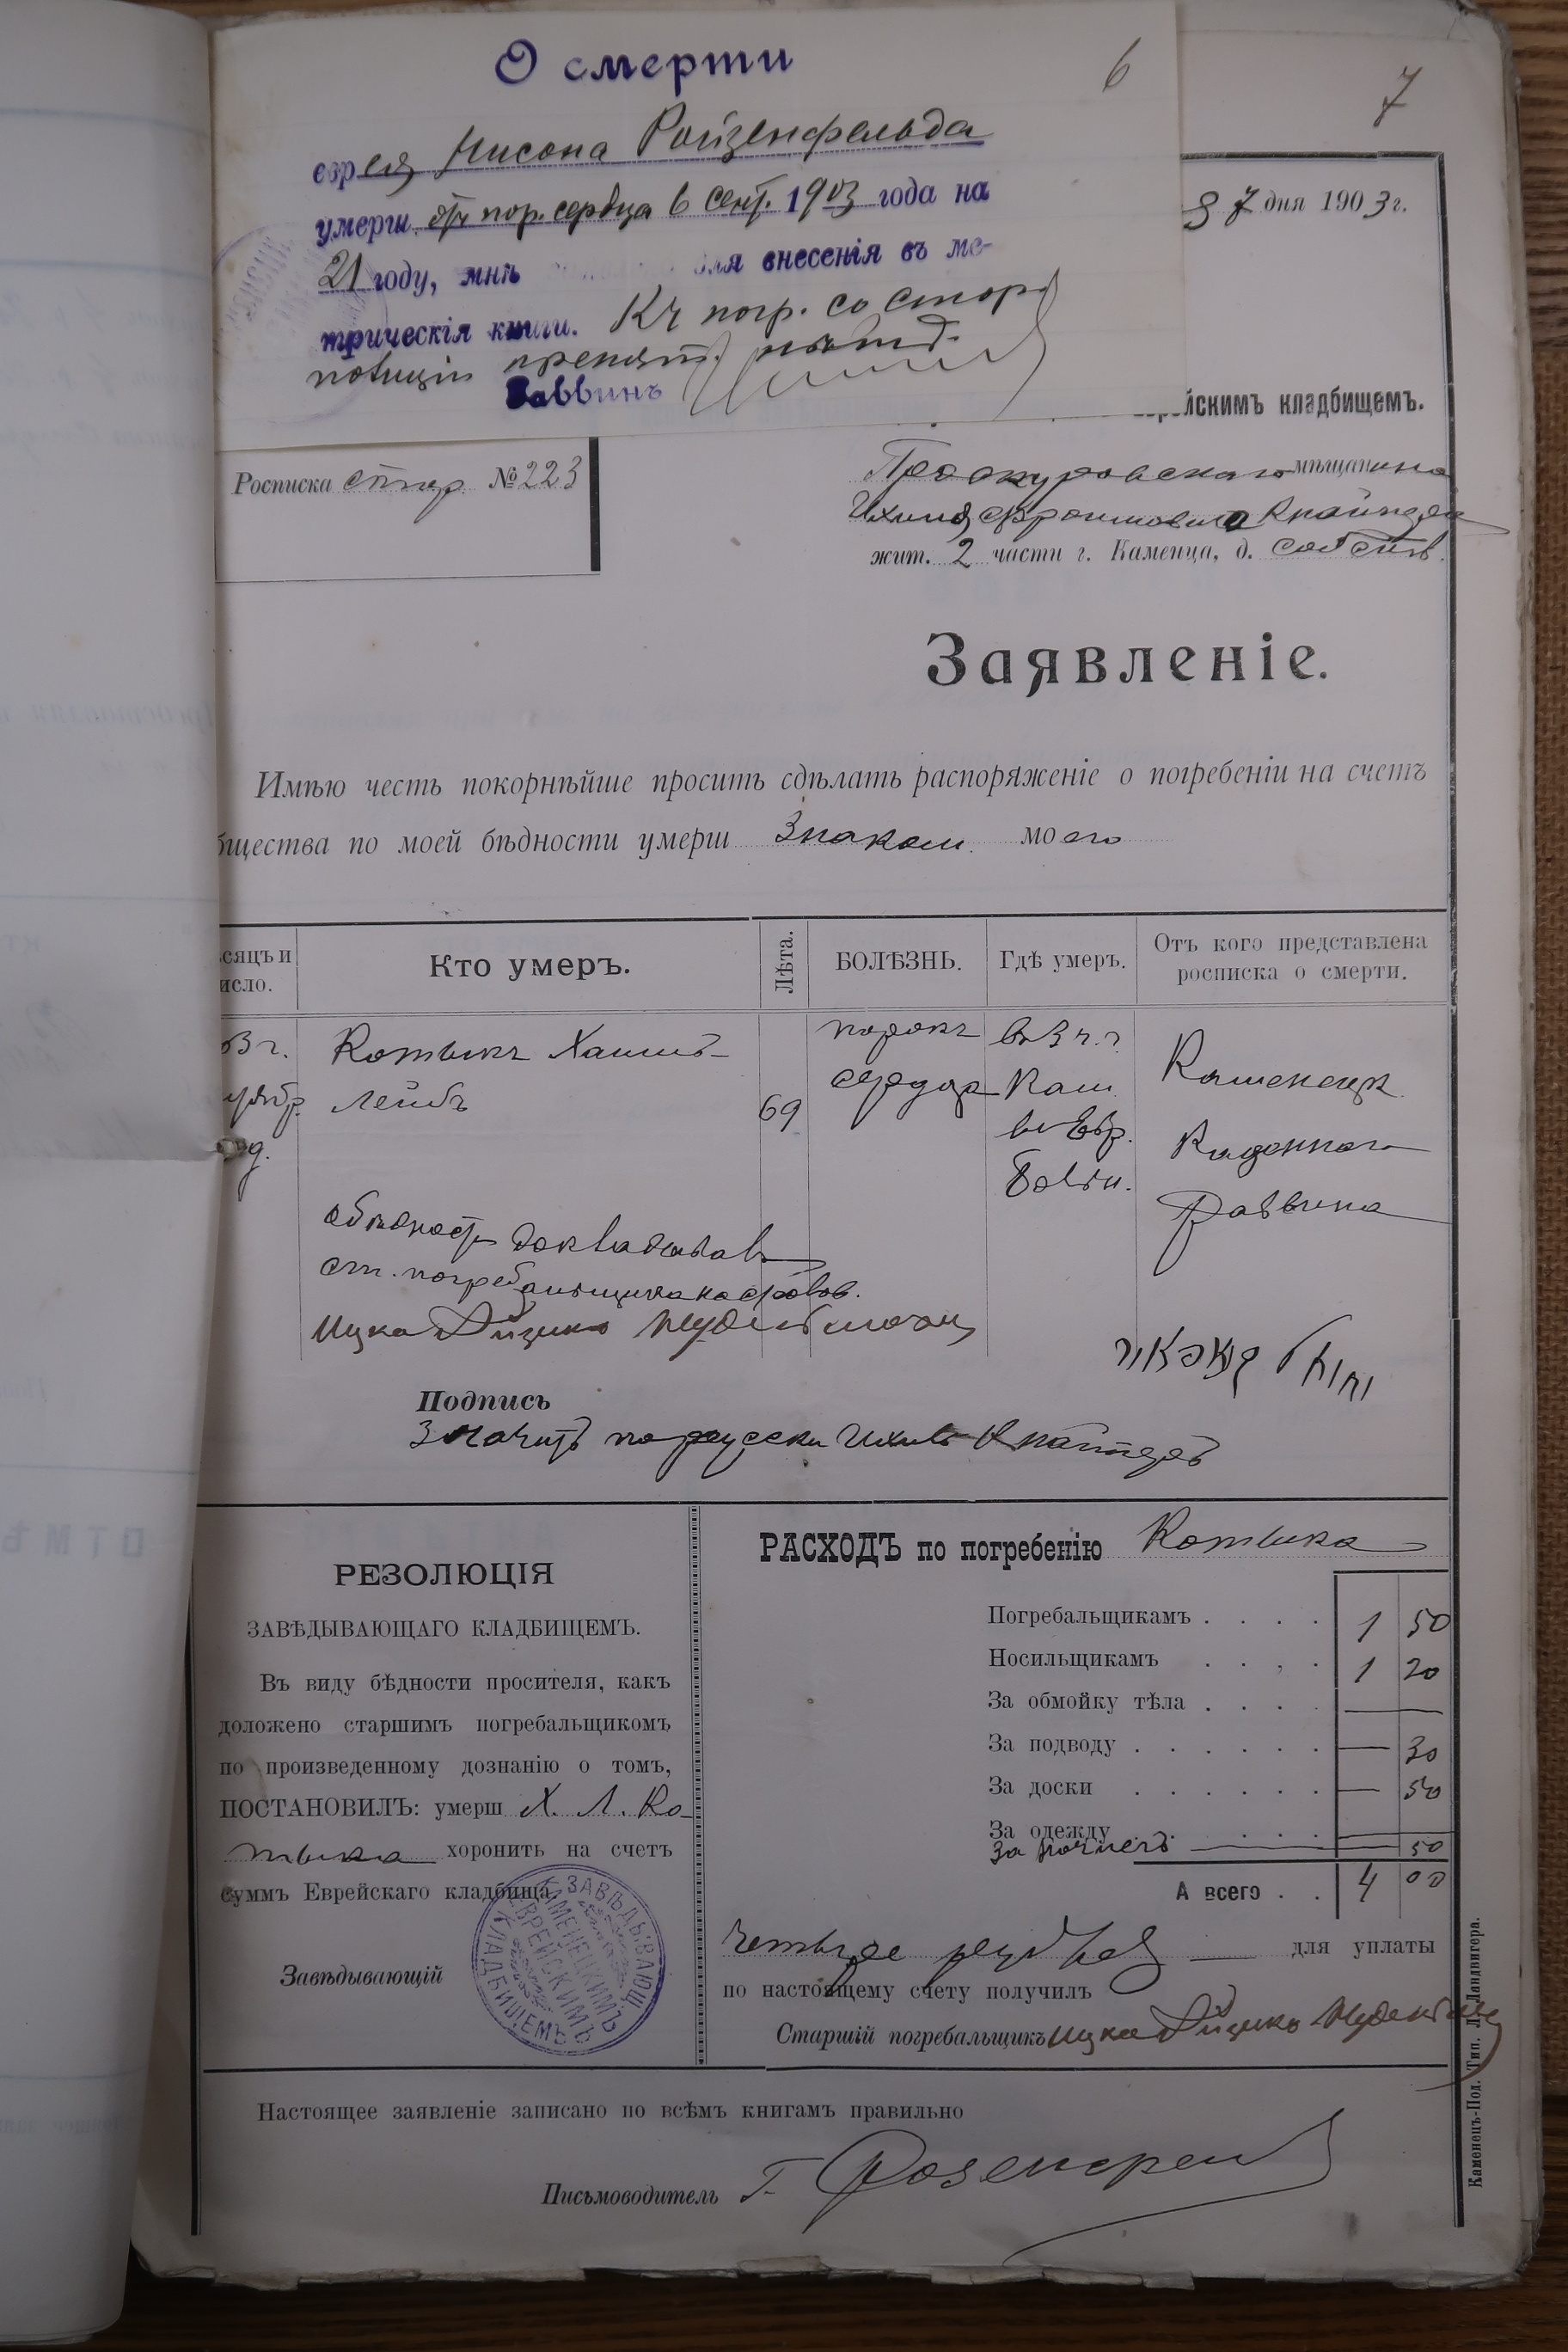 О смерти
6
7
еврея Нисона Ройзенфельда
умерш. отъ пор. сердца 6 сент. 1903 года на
21 году, мнѣ для внесенія въ ме-
трическія книги. Къ погр. со стор.
полиціи препят. нѣтъ
Раввинъ
7 дня 1903 г.
йскимъ кладбищемъ.
Росписка стар. № 223
Проскуровскаго мѣщанина
Ихиля
жит. 2 части г. Каменца, д. собств.
Заявленіе.
Имѣю честь покорнѣйше просить сдѣлать распоряженіе о погребеніи на счетъ
бщества по моей бѣдности умерш знаком. моего
сяцъ и
исло.
Кто умеръ.
Лѣта.
БОЛѢЗНЬ.
Гдѣ умеръ.
Отъ кого представлена
росписка о смерти.
03 г.
Котыкъ Хаимъ-
Лейбъ
69
порокъ
сердца
въ 3 ч. г.
Кам.
въ Евр.
больн.
Каменецк.
Казеннаго
Раввина
о бѣдности докладывалъ
ст. погребальщика
Ицка Айзикъ
Подпись
Значитъ по русски Ихиль
РЕЗОЛЮЦІЯ
ЗАВѢДЫВАЮЩАГО КЛАДБИЩЕМЪ.
Въ виду бѣдности просителя, какъ
доложено старшимъ погребальщикомъ
по произведенному дознанію о томъ,
ПОСТАНОВИЛЪ: умерш Х. Л. Ко-
тыка хоронить на счетъ
суммъ Еврейскаго кладбища.
Завѣдывающій
ЗАВѢДЫВАЮЩ.
КАМЕНЕЦКИМЪ
ЕВРЕЙСКИМЪ
КЛАДБИЩЕМЪ
РАСХОДЪ по погребенію Котыка
Погребальщикамъ . . . . 1 50
Носильщикамъ . . . . 1 20
За обмойку тѣла . . . . —
За подводу . . . . . . — 30
За доски . . . . . . — 50
За одежду . . . . .
За — 50
А всего . . 4 00
четыре рубля — для уплаты
по настоящему счету получилъ
Старшій погребальщикъ Ицка Айзикъ
Настоящее заявленіе записано по всѣмъ книгамъ правильно
Письмоводитель Г. Розенгрен
Каменецъ-Под. Тип. Л. Ландвигера.